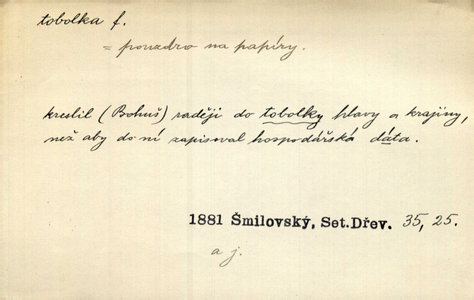 tobolka f.
= pouzdro na papíry.
kreslil (Bohuš) raději do tobolky hlavy a krajiny,
než aby do ní zapisoval hospodářská dáta.
1881 Šmilovský, Set.Dřev. 35, 25.
a j.